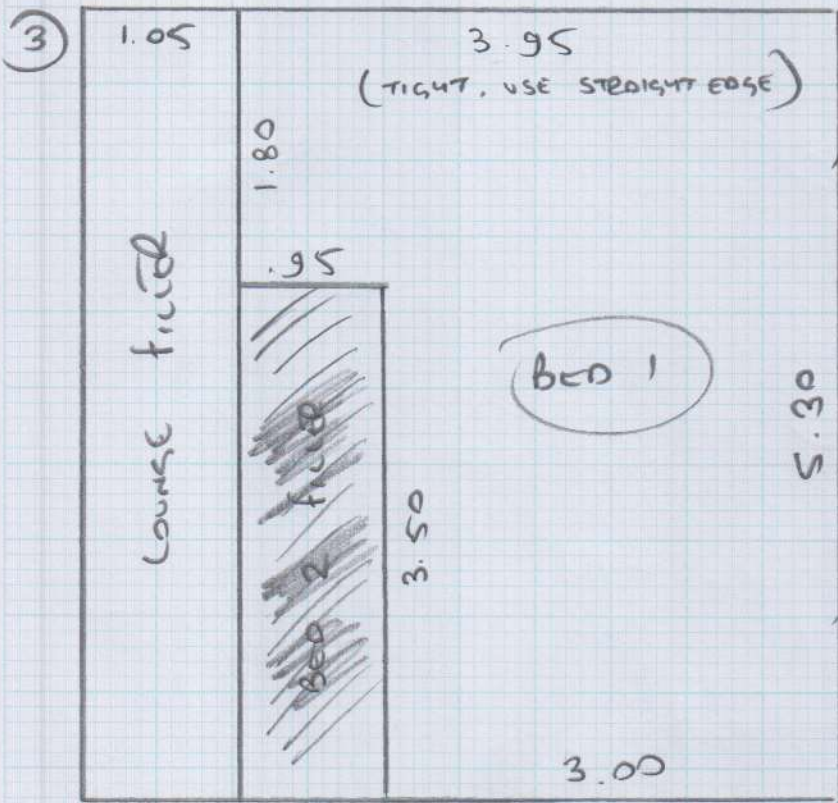 3
1.05
3.95
(TIGHT, USE STRAIGHT EDGE)
1.80
.95
LOUNGE FILLER
BED 1
BED 2 FILLER
3.50
5.30
3.00